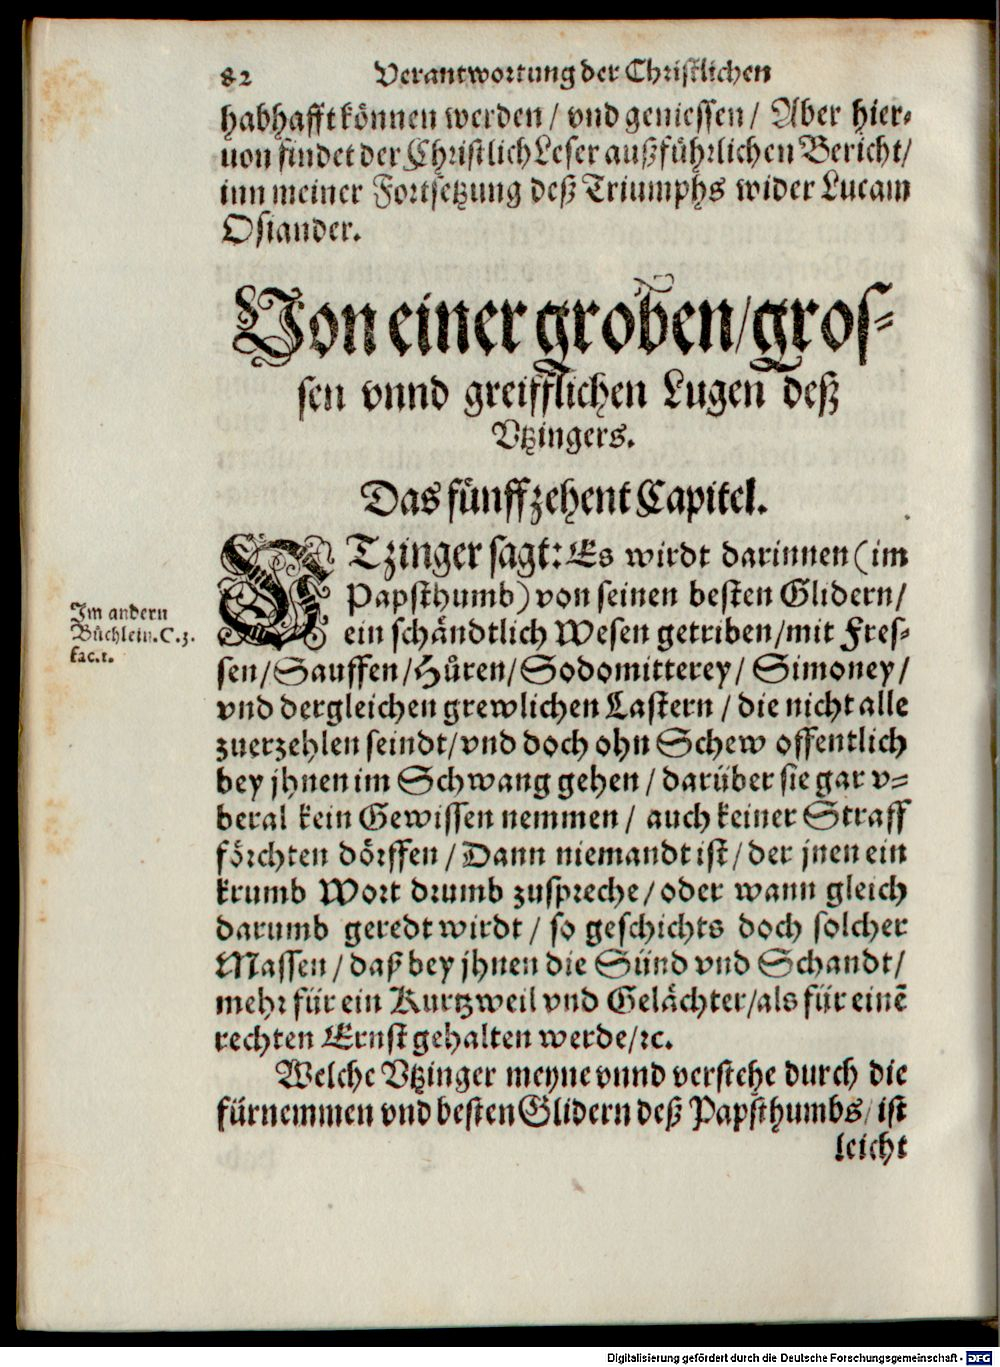 82 Verantwortung der Christlichen
habhafft können werden / vnd geniessen / Aber hier-
uon findet der Christlich Leser außführlichen Bericht /
inn meiner Fortsetzung deß Triumphs wider Lucam
Osiander.
Von einer groben / gros-
sen vnnd greifflichen Lugen deß
Vtzingers.
Das fünffzehent Capitel.
VTzinger sagt: Es wirdt darinnen (im
Papsthumb) von seinen besten Glidern /
ein schändtlich Wesen getriben / mit Fres-
sen / Sauffen / Hůren / Sodomitterey / Simoney /
vnd dergleichen grewlichen Lastern / die nicht alle
zuerzehlen seindt / vnd doch ohn Schew offentlich
bey jhnen im Schwang gehen / darüber sie gar v-
beral kein Gewissen nemmen / auch keiner Straff
förchten dörffen / Dann niemandt ist / der jnen ein
krumb Wort drumb zuspreche / oder wann gleich
darumb geredt wirdt / so geschichts doch solcher
Massen / daß bey jhnen die Sünd vnd Schandt /
mehr für ein Kurtzweil vnd Gelächter / als für einē
rechten Ernst gehalten werde / ꝛc.
Welche Vtzinger meyne vnnd verstehe durch die
fürnemmen vnd besten Glidern deß Papsthumbs / ist
leicht
Im andern
Büchlein. C. 3.
fac. 1.
Digitalisierung gefördert durch die Deutsche Forschungsgemeinschaft - DFG